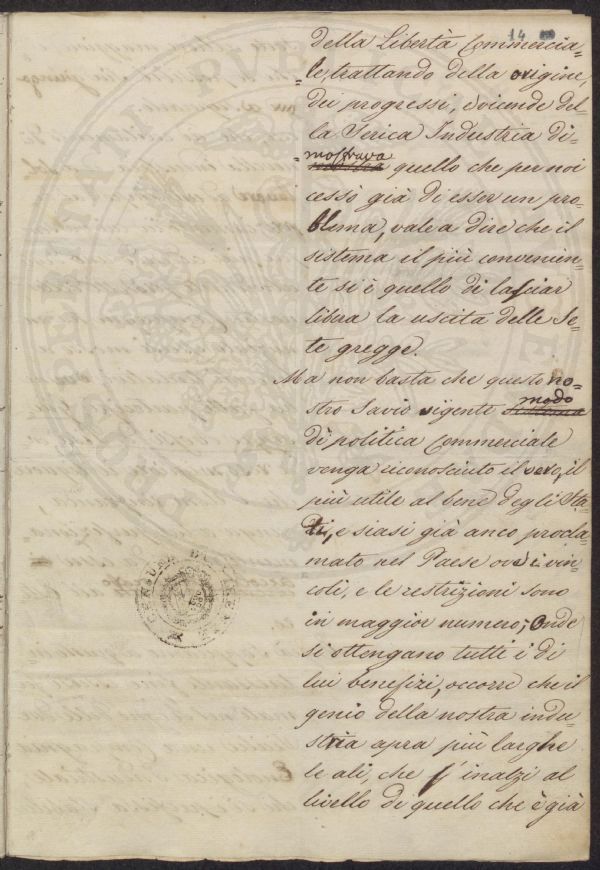 14
della Libertà Commercia=
=le, trattando della origine,
dei progressi, e vicende del=
la Serica Industria di=
=mostrava quello che per noi
cessò già di esser un pro=
blema, vale a dire che il
sistema il più convenien=
te si è quello di lasciar
libera la uscita delle Se=
te gregge.
Ma non basta che questo no=
stro Savio vigente modo
di politica Commerciale
venga riconosciuto il vero, il
più utile al bene degli Sta=
ti, e siasi già anco procla=
mato nel Paese ove i vin=
coli, e le restrizioni sono
in maggior numero; Onde
si ottengano tutti i di
lui benefizi, occorre che il
genio della nostra indu=
stria apra più larghe
le ali, che s'inalzi al
livello di quello che è già